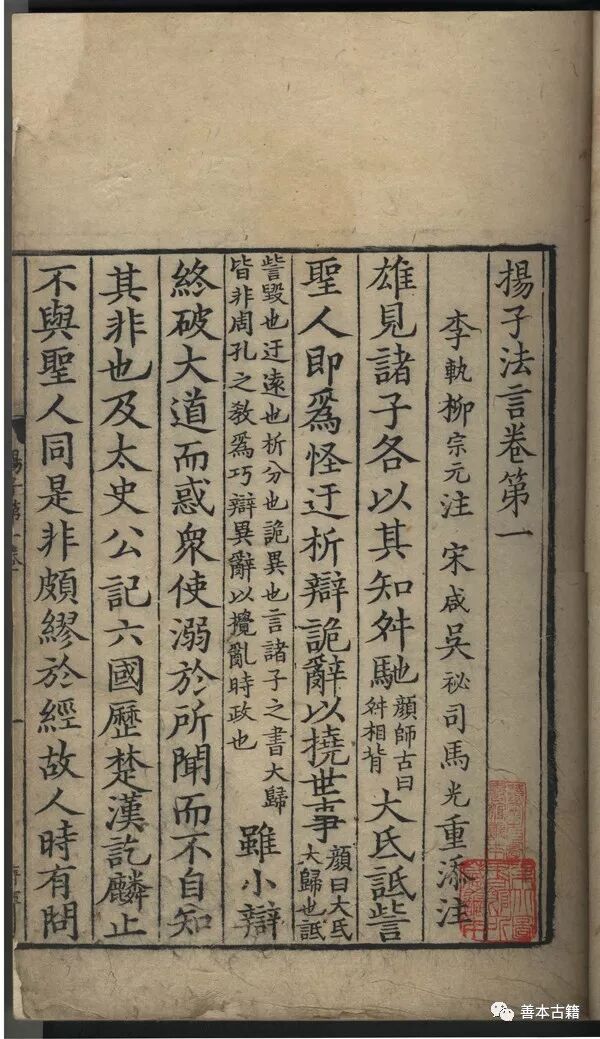 揚子法言卷第一
李軌柳宗元注 宋咸吳祕司馬光重添注
雄見諸子各以其知舛馳顏師古曰舛相背大氐詆訾
聖人即爲怪迂析辯詭辭以撓世事顏曰大氐大歸也詆
訾毀也迂遠也析分也詭異也言諸子之書大歸
皆非周孔之教爲巧辯異辭以攪亂時政也
雖小辯
終破大道而惑衆使溺於所聞而不自知
其非也及太史公記六國歷楚漢訖麟止
不與聖人同是非頗繆於經故人時有問
善本古籍